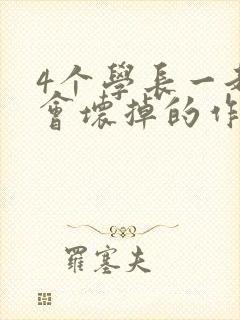 4个學長一起
會壞掉的作
羅塞夫